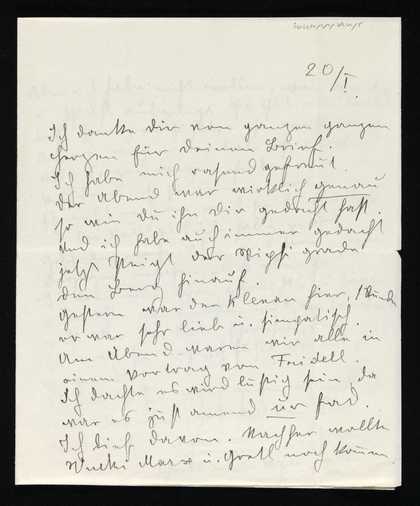 20/I.
Ich danke Dir vom ganzen ganzen
Herzen für Deinen Brief.
Ich habe mich rasend gefreut.
Der Abend war wirklich genau
so wie du ihn Dir gedacht hast.
Und ich habe auch immer gedacht
jetzt steigt der Pipsi grade
den Berg hinauf.
Gestern war der Klenau hier, 1 Stunde
er war sehr lieb u. simpatisch.
Am Abend waren wir alle in
einem Vortrag von Fridell.
Ich dachte es wird lustig sein, da
war es just amend ur fad.
Ich lief davon. Nachher wollte
Marx u. Gretl noch kommen